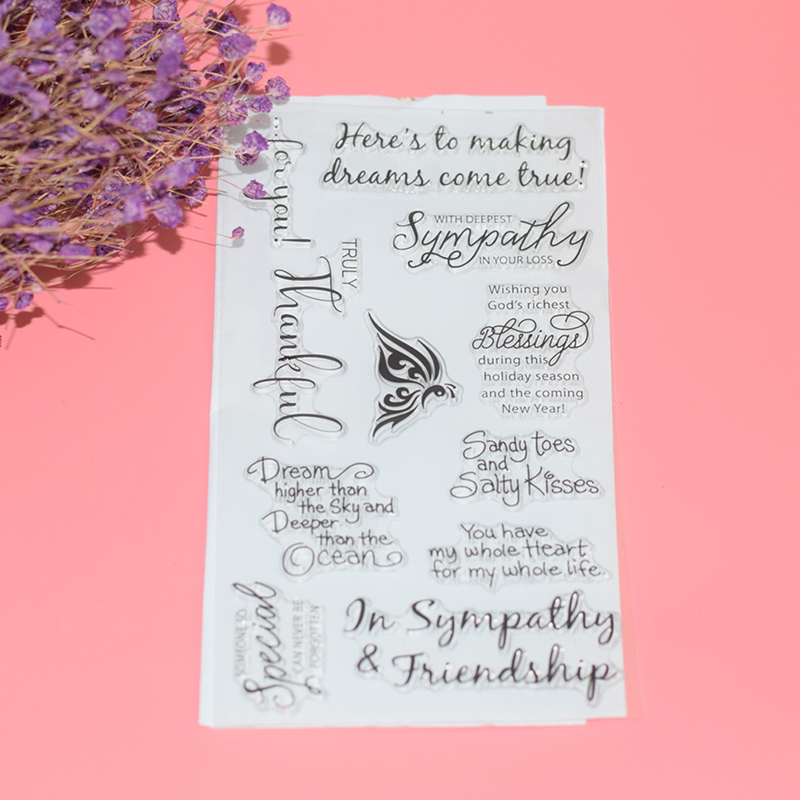 Here's to making
dreams come true!
...for you!
WITH DEEPEST
Sympathy
IN YOUR LOSS
TRULY
Thankful
Wishing you
God's richest
Blessings
during this
holiday season
and the coming
New Year!
Sandy toes
and
Salty Kisses
Dream
higher than
the Sky and
Deeper
than the
Ocean
You have
my whole Heart
for my whole life.
SOMEONE SO
Special
CAN NEVER BE
FORGOTTEN
In Sympathy
& Friendship